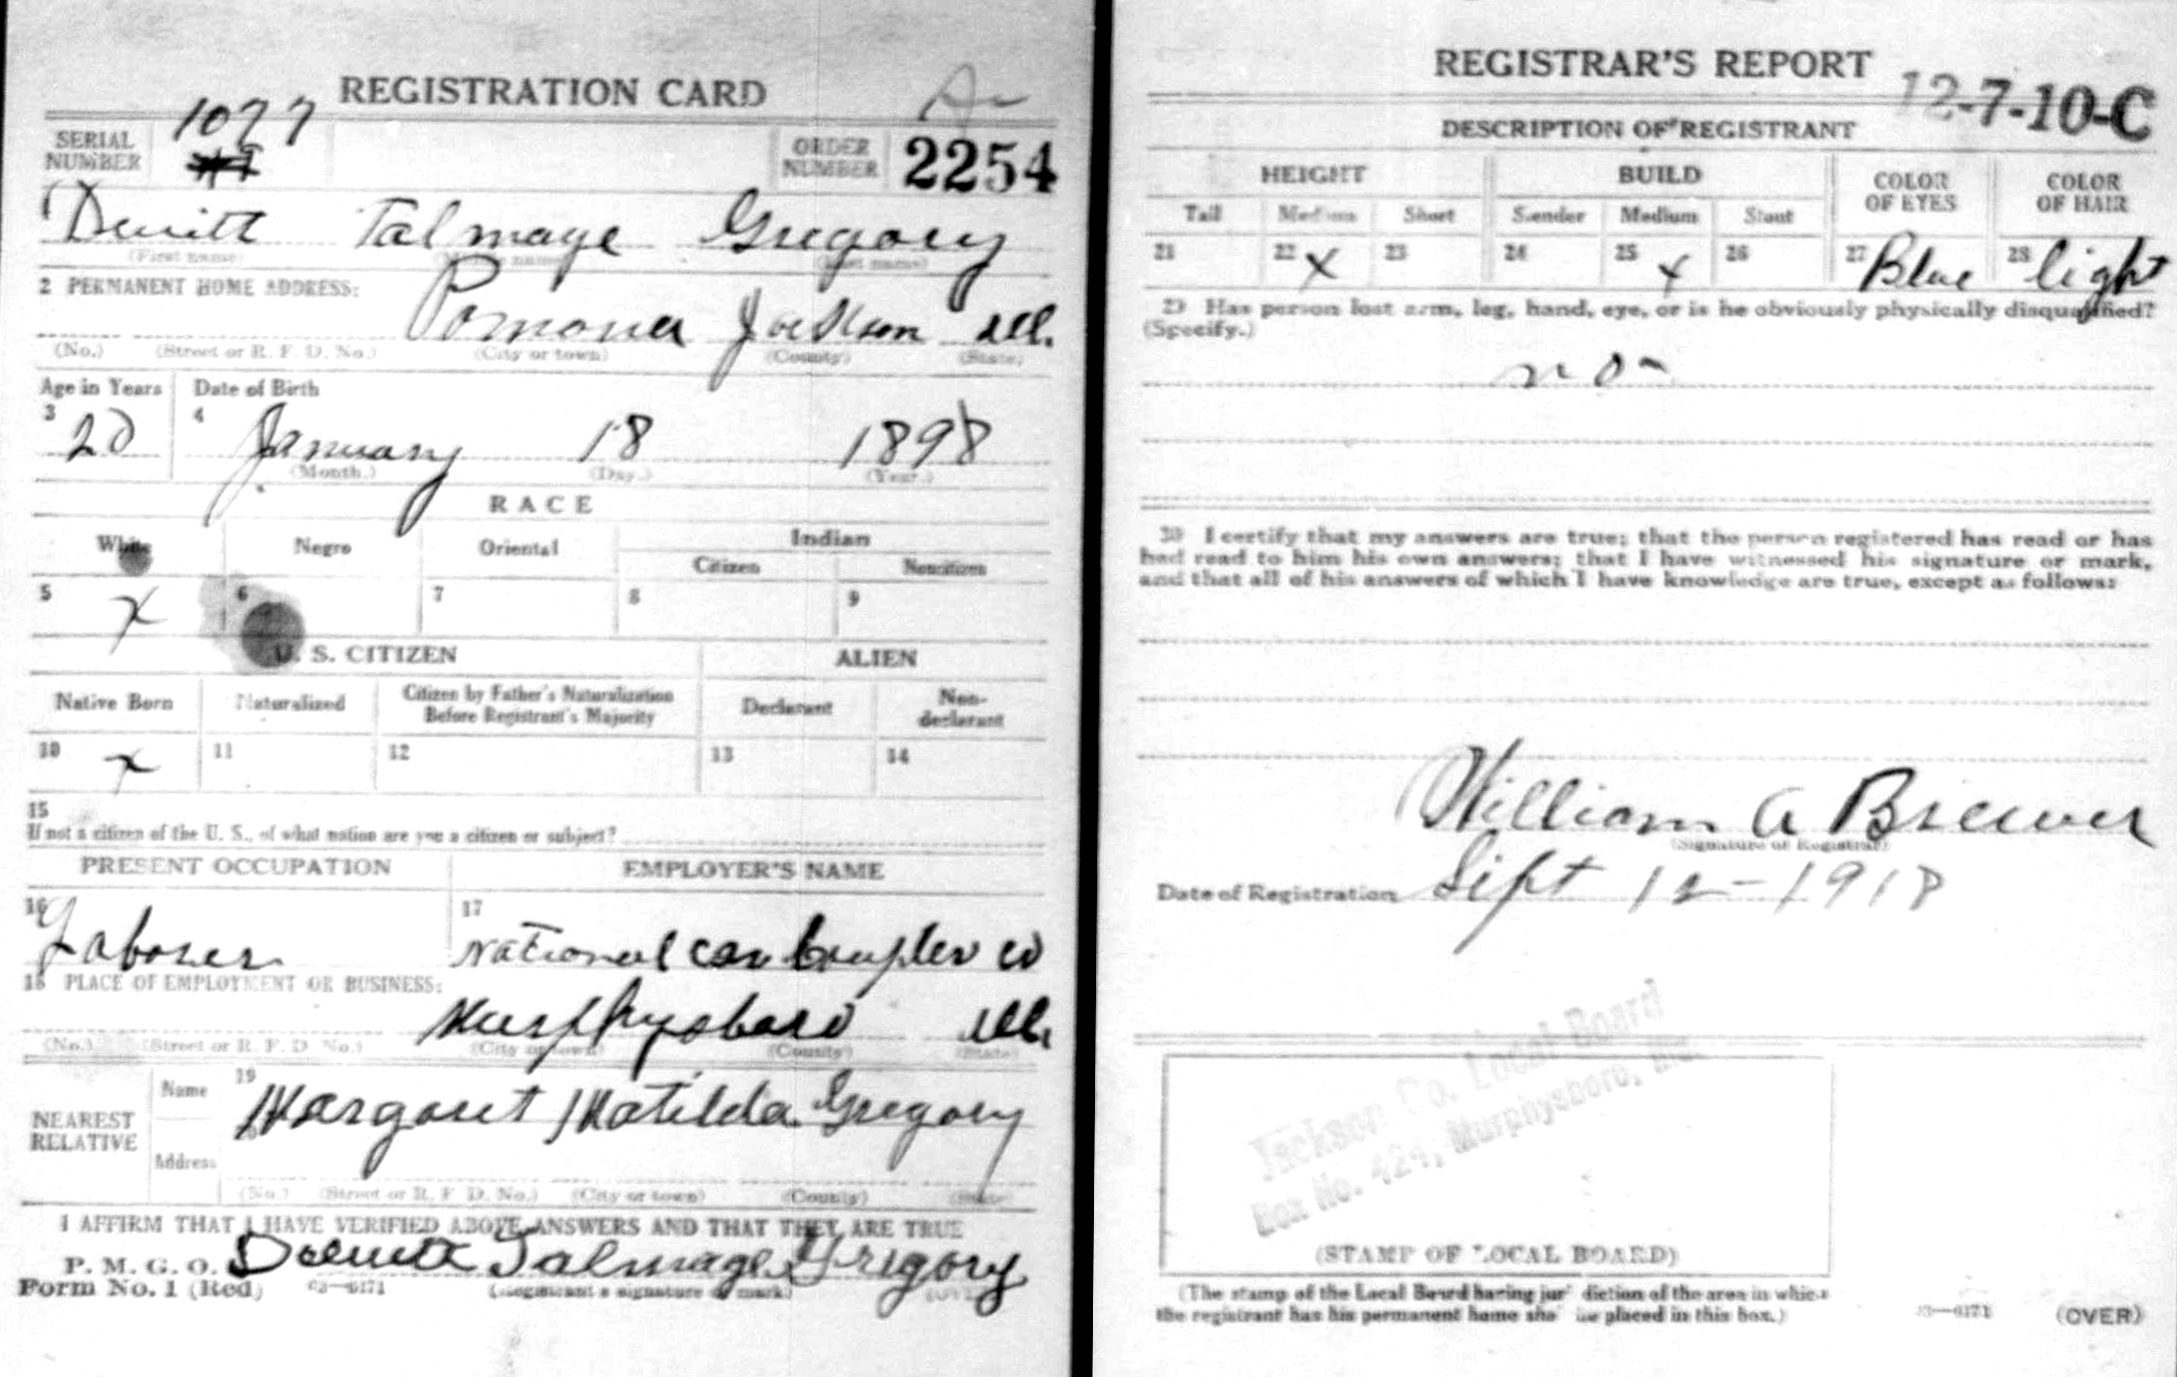 REGISTRATION CARD
SERIAL NUMBER 1077
ORDER NUMBER 2254
Dewitt Talmage Gregory
(First name) (Middle name) (Last name)
2 PERMANENT HOME ADDRESS:
Pomona Jackson Ill.
(No.) (Street or R. F. D. No.) (City or town) (County) (State)
Age in Years Date of Birth
3 20 4 January 18 1898
(Month.) (Day.) (Year.)
RACE
White Negro Oriental Indian
Citizen Noncitizen
5 X 6 7 8 9
U. S. CITIZEN ALIEN
Native Born Naturalized Citizen by Father's Naturalization Before Registrant's Majority Declarant Non-declarant
10 X 11 12 13 14
15
If not a citizen of the U. S., of what nation are you a citizen or subject?
PRESENT OCCUPATION EMPLOYER'S NAME
16 Laborer 17 National Car Coupler Co
18 PLACE OF EMPLOYMENT OR BUSINESS:
Murphysboro Ill.
(No.) (Street or R. F. D. No.) (City or town) (County) (State)
NEAREST RELATIVE
Name 19 Margaret Matilda Gregory
Address
(No.) (Street or R. F. D. No.) (City or town) (County) (State)
I AFFIRM THAT I HAVE VERIFIED ABOVE ANSWERS AND THAT THEY ARE TRUE
P. M. G. O. Dewitt Talmage Gregory
Form No. 1 (Red) 03—6171 (Registrant's signature or mark) (OVER)
REGISTRAR'S REPORT
12-7-10-C
DESCRIPTION OF REGISTRANT
HEIGHT BUILD COLOR OF EYES COLOR OF HAIR
Tall Medium Short Slender Medium Stout
21 22 X 23 24 25 X 26 27 Blue 28 light
29 Has person lost arm, leg, hand, eye, or is he obviously physically disqualified?
(Specify.)
no
30 I certify that my answers are true; that the person registered has read or has
had read to him his own answers; that I have witnessed his signature or mark,
and that all of his answers of which I have knowledge are true, except as follows:
William A Brewer
(Signature of Registrar)
Date of Registration Sept 12-1918
Jackson Co. Local Board
Box No. 424, Murphysboro,
(STAMP OF LOCAL BOARD)
(The stamp of the Local Board having jurisdiction of the area in which
the registrant has his permanent home shall be placed in this box.)
03—6171 (OVER)